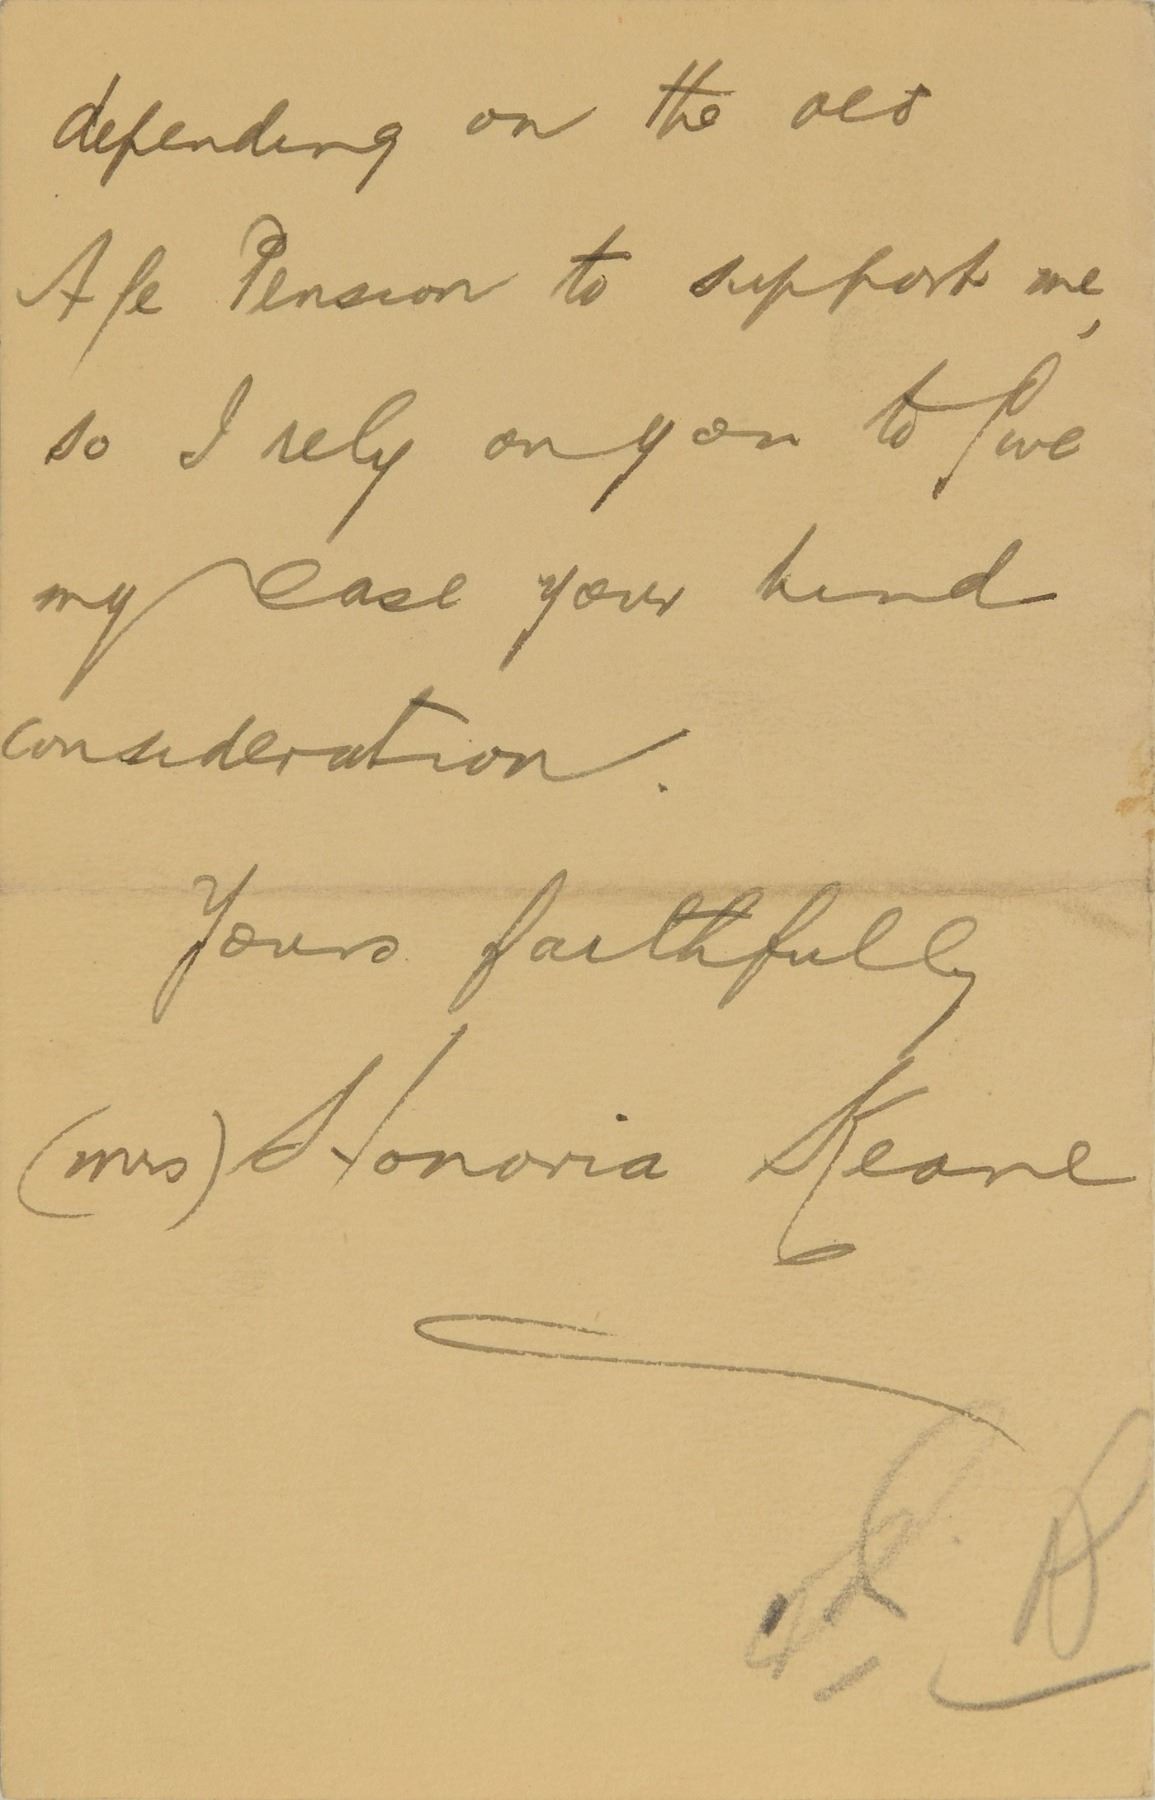 depending on the old
Age Pension to support me,
so I rely on you to give
my case your kind
consideration.
Yours faithfully
(mrs) Honoria Keane